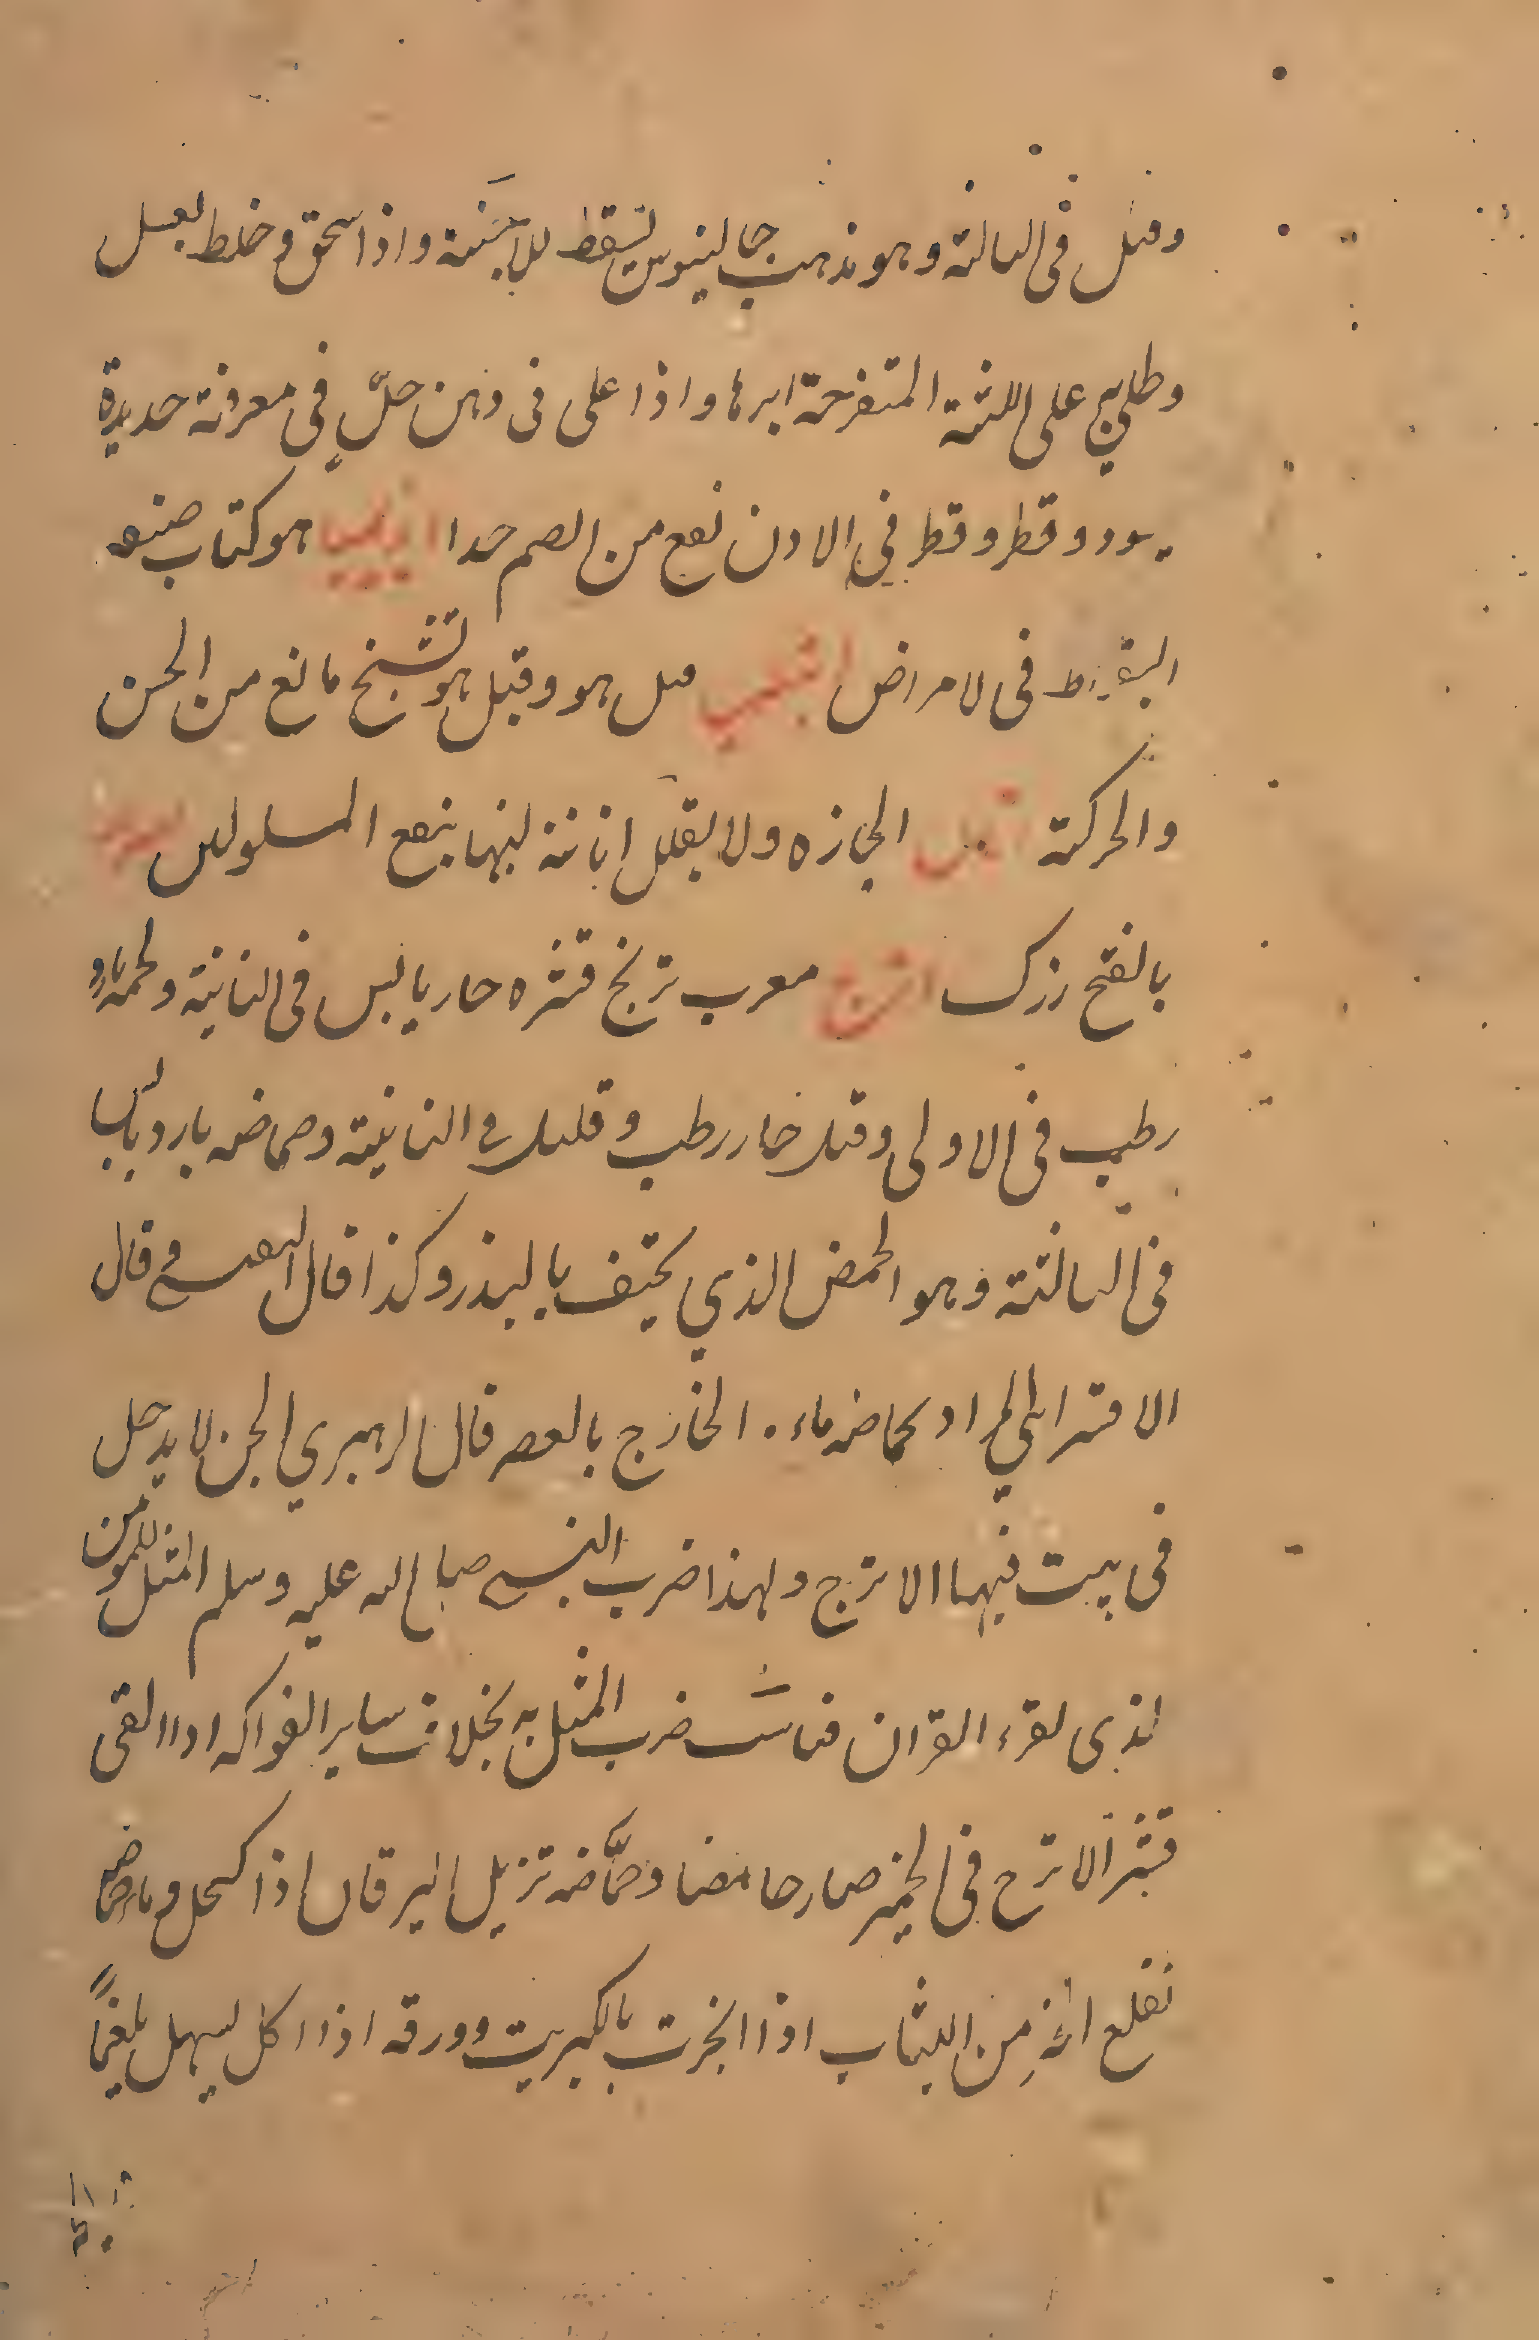 وقيل في الثالثة وهو مذهب جالينوس يسقط للاجنة واذا سحق وخلط بعسل
وطلي به على اللثة المتقرحة ابرءها واذا غلى في دهن حلّ في مغرفة حديدة
يسود وقطر وقطر في الاذن نفع من الصمم جدا ابيديميا هو كتاب صنعه
البقراط في الامراض قيل هو وقيل هو تشنج مانع من الحس
والحركة الجازه ولا يقلل اناثة لبنها ينفع المسلولين
بالفتح زرك اترج معرب ترنج قشره حار يابس في الثانية ولحمه بارد
رطب في الاولى وقيل حار رطب وقليل في الثانية وحماضه بارد يابس
في الثالثة وهو الحمض الذي يحتف بالبذر وكذا قال البعض وقال
الاقسرائي المراد بحماضه ماءه الخارج بالعصر قال الزهيري الجن لا يدخل
في بيت فيها الاترج ولهذا ضرب النبي صلى الله عليه وسلم المثل للمومن
الذي يقرء القران فناسب ضرب المثل به بخلاف ساير الفواكه اذا القي
قشر الاترج في الخمر صار حامضا وحمّاضه تزيل اليرقان اذا كحل وماء حماضه
تقلع اثره من الثياب اذا انجرت بالكبريت وورقه اذا اكل يسهل بلغماً